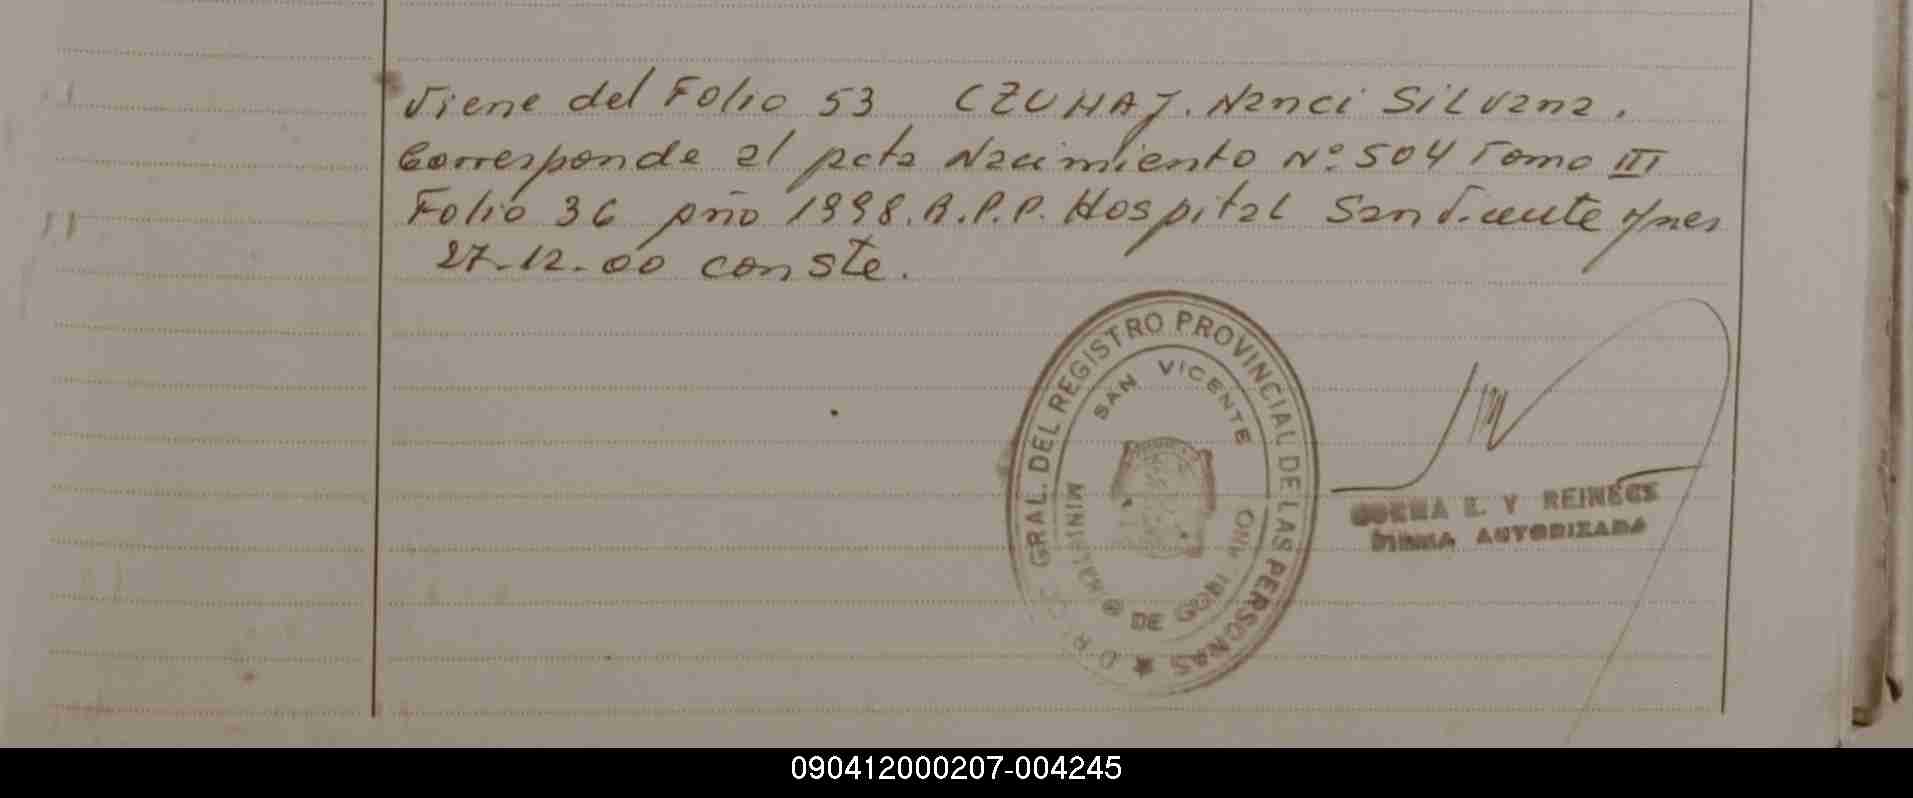 Viene del Folio 53 CZUHAJ. Nanci SiLvana.
Corresponde al acta Nacimiento Nº 504 Tomo III
Folio 36 año 1998. A.P.P. Hospital San Vicente
27-12-00 conste.
GRAL. DEL REGISTRO PROVINCIAL DE LAS PERSONAS
SAN VICENTE
MINISTERIO DE GOBIERNO
E. Y REINECS
FIRMA AUTORIZADA
090412000207-004245